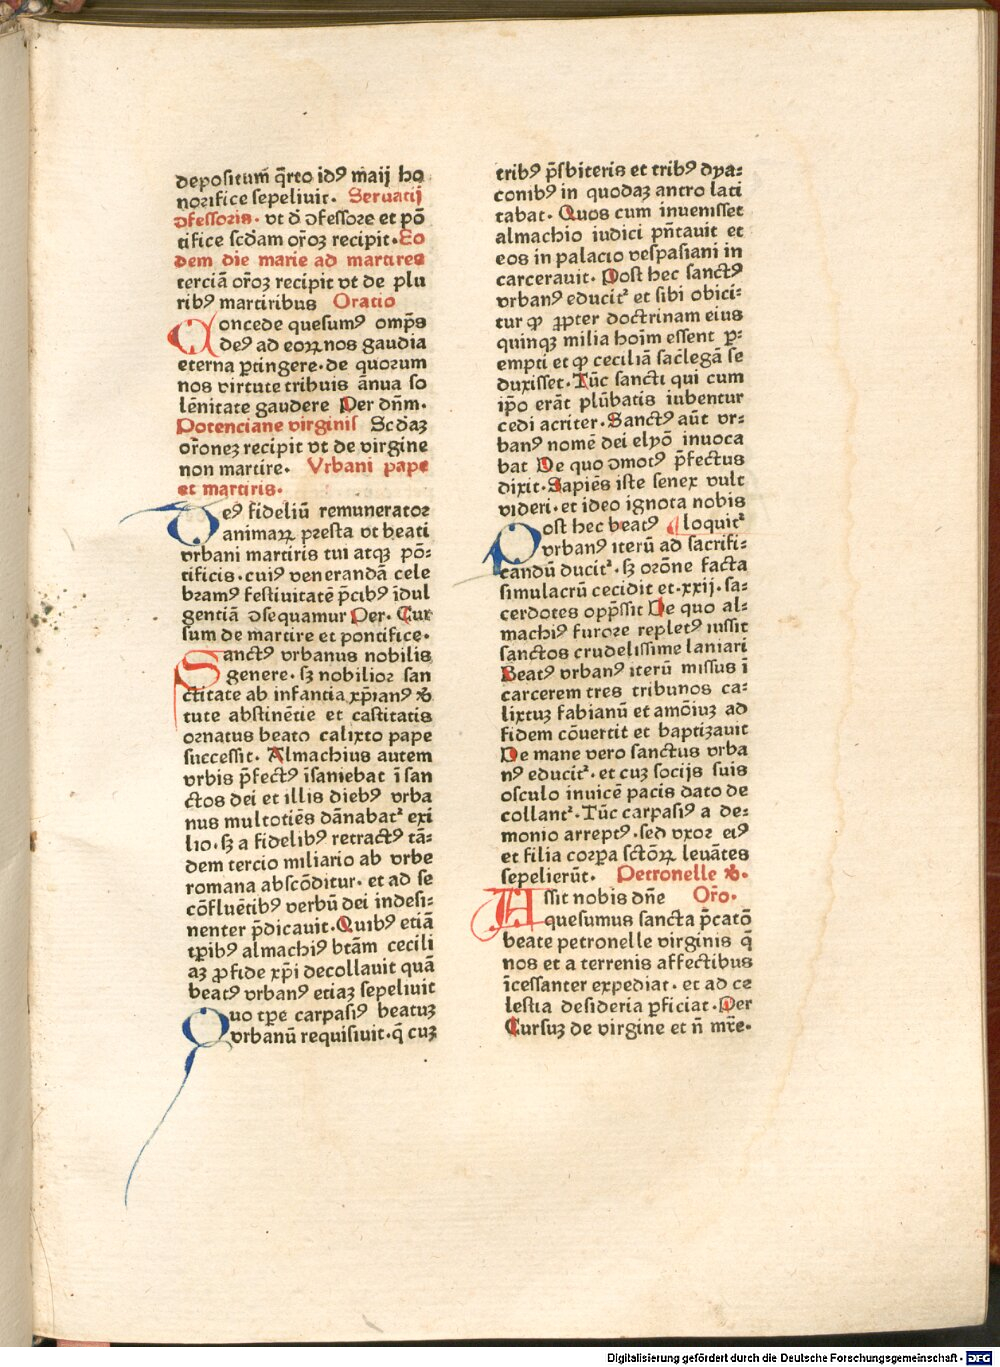 depositum̄ q̄rto idꝰ maij ho
norifice sepeliuit. Seruatij
ↄfessoris. vt d̄ ↄfessore et pō
tifice scd̄am or̄oꝫ recipit. Eo
dem die marie ad martires
terciā or̄oꝫ recipit vt de plu
ribꝰ martiribus Oratio
Concede quesumꝰ omp̄s
deꝰ ad eoꝝ nos gaudia
eterna ꝑtingere. de quorum
nos virtute tribuis ānua so
lēnitate gaudere Per dn̄m.
Potenciane virginis Scdaꝫ
or̄oneꝫ recipit vt de virgine
non martire. Vrbani pape
et martiris.
Deꝰ fideliū remunerator
animaꝝ presta vt beati
vrbani martiris tui atqꝫ pō:
tificis. cuiꝰ venerandā cele
bramꝰ festiuitatē p̄cibꝰ īdul
gentiā ↄsequamur Per. Cur
sum de martire et pontifice.
Sanctꝰ vrbanus nobilis
genere. sꝫ nobilior san
ctitate ab infantia xp̄ianꝰ v̾
tute abstinētie et castitatis
ornatus beato calixto pape
successit. Almachius autem
vrbis p̄fectꝰ īsaniebat ī san
ctos dei et illis diebꝰ vrba
nus multotiēs dānabat² exi
lio. sꝫ a fidelibꝰ retractꝰ tā:
dem tercio miliario ab vrbe
romana abscōditur. et ad se
cōfluētibꝰ verbū dei indesi:
nenter p̄dicauit. Quibꝰ etiā
tp̄ibꝰ almachiꝰ btām cecili
aꝫ ꝓ fide xp̄i decollauit quā
beatꝰ vrbanꝰ etiaꝫ sepeliuit
Quo tp̄e carpasiꝰ beatuꝫ
vrbanū requisiuit. q̄ cuꝫ
tribꝰ p̄sbiteris et tribꝰ dya:
conibꝰ in quodaꝫ antro lati
tabat. Quos cum inuenisset
almachio iudici pn̄tauit et
eos in palacio vespasiani in
carcerauit. Post hec sanctꝰ
vrbanꝰ educit² et sibi obici:
tur ꝙ ꝓpter doctrinam eius
quinqꝫ milia hoīm essent ꝑ:
empti et ꝙ ceciliā sac̄legā se
duxisset. Tūc sancti qui cum
ip̄o erāt plūbatis iubentur
cedi acriter. Sanctꝰ aūt vr:
banꝰ nomē dei elyō inuoca
bat De quo ↄmotꝰ p̄fectus
dixit. Sapiēs iste senex vult
videri. et ideo ignota nobis
Post hec beatꝰ ¶loquit²
vrbanꝰ iterū ad sacrifi:
candū ducit². sꝫ orōne facta
simulacrū cecidit et. xxij. sa:
cerdotes opp̄ssit De quo al:
machiꝰ furore repletꝰ iussit
sanctos crudelissime laniari
Beatꝰ vrbanꝰ iterū missus ī
carcerem tres tribunos ca:
lixtuꝫ fabianū et amōiuꝫ ad
fidem cōuertit et baptizauit
De mane vero sanctus vrba
nꝰ educit². et cuꝫ socijs suis
osculo inuicē pacis dato de
collant². Tūc carpasiꝰ a de:
monio arreptꝰ. sed vxor eiꝰ
et filia corꝑa sctōꝝ leuātes
sepelierūt. Petronelle v̾.
Assit nobis dn̄e Or̄o.
quesumus sancta p̄catō
beate petronelle virginis q̄
nos et a terrenis affectibus
īcessanter expediat. et ad ce
lestia desideria ꝑficiat. Per
Cursuꝫ de virgine et n̄ mr̄e.
Digitalisierung gefördert durch die Deutsche Forschungsgemeinschaft - DFG